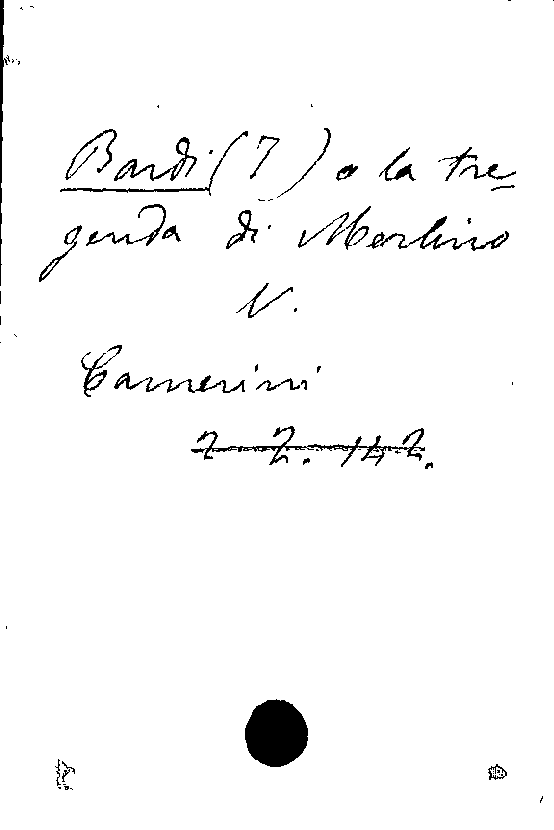 Bardi (7) o la tre-
genda di Merlino
V.
Camerini
2 2. 142.